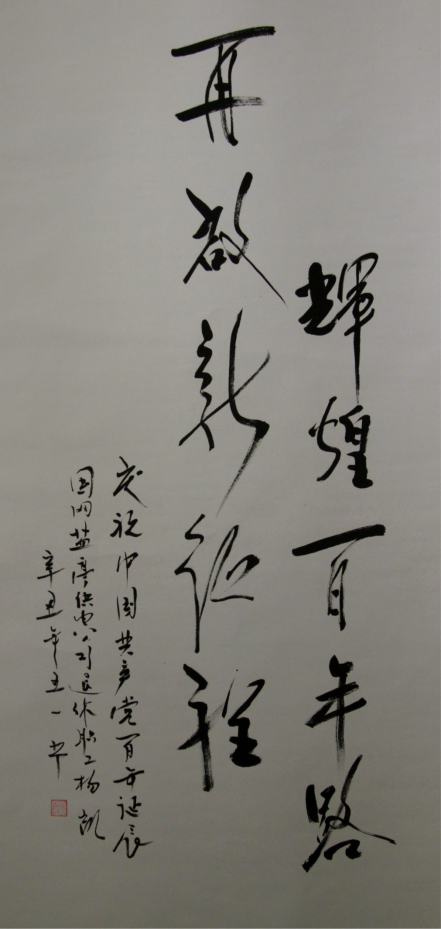 輝煌百年路
再啟新征程
庆祝中国共产党百年诞辰
国网盐亭供电公司退休职工杨凯
辛丑年五一书